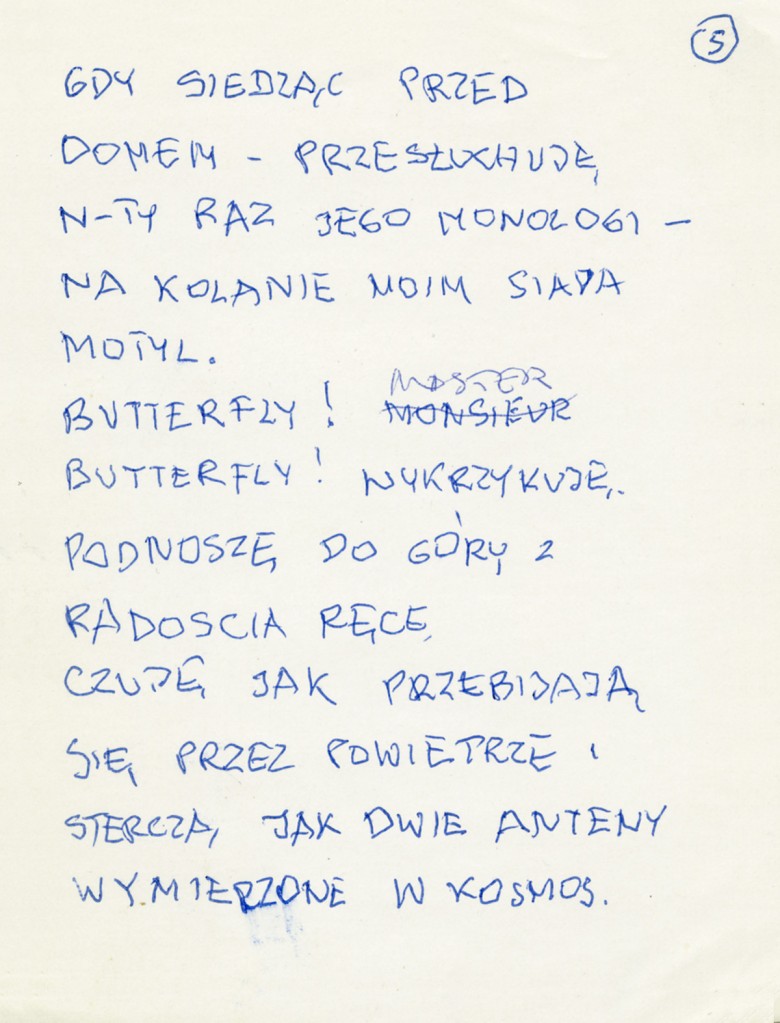 5
GDY SIEDZĄC PRZED
DOMEM - PRZESŁUCHUJĘ
N-TY RAZ JEGO MONOLOGI -
NA KOLANIE MOIM SIADA
MOTYL.
MASTER
BUTTERFLY! MONSIEUR
BUTTERFLY! WYKRZYKUJĘ.
PODNOSZĘ DO GÓRY Z
RADOSCIA RĘCE
CZUJĘ JAK PRZEBIJAJĄ
SIĘ PRZEZ POWIETRZE I
STERCZĄ JAK DWIE ANTENY
WYMIERZONE W KOSMOS.